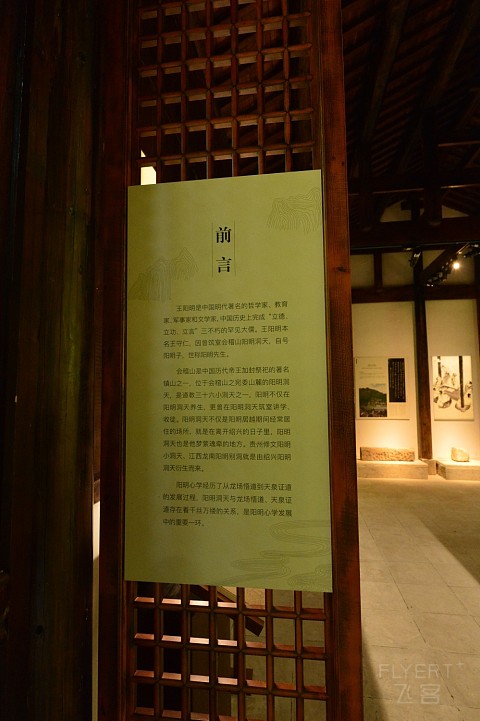 前
言
王阳明是中国明代著名的哲学家、教育
家、军事家和文学家,中国历史上完成“立德、
立功、立言”三不朽的罕见大儒。王阳明本
名王守仁,因曾筑室会稽山阳明洞天,自号
阳明子,世称阳明先生。
会稽山是中国历代帝王加封祭祀的著名
镇山之一,位于会稽山之宛委山麓的阳明洞
天,是道教三十六小洞天之一,阳明不仅在
阳明洞天养生,更曾在阳明洞天筑室讲学、
收徒。阳明洞天不仅是阳明居越期间经常居
住的场所,就是在离开绍兴的日子里,阳明
洞天也是他梦萦魂牵的地方。贵州修文阳明
小洞天,江西龙南阳明别洞就是由绍兴阳明
洞天衍生而来。
阳明心学经历了从龙场悟道到天泉证道
的发展过程,阳明洞天与龙场悟道、天泉证
道存在着千丝万缕的关系,是阳明心学发展
中的重要一环。
FLYERT
飞客